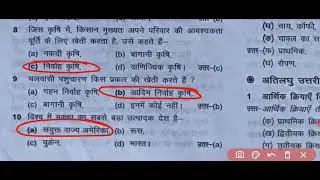 8 जिस कृषि में, किसान मुख्यतः अपने परिवार की आवश्यकता
पूर्ति के लिए खेती करता है, उसे कहते हैं–
(a) नकदी कृषि, (b) बागानी कृषि,
(c) निर्वाह कृषि, (d) वाणिज्यिक कृषि। उत्तर–(c)
9 चलवासी पशुचारण किस प्रकार की खेती करते हैं ?
(a) गहन निर्वाह कृषि, (b) आदिम निर्वाह कृषि,
(c) बागानी कृषि, (d) इनमें कोई नहीं। उत्तर–(b)
10 विश्व में मक्का का सबसे बड़ा उत्पादक देश है–
(a) संयुक्त राज्य अमेरिका, (b) रूस,
(c) युक्रेन, (d) भारत। उत्तर–(a)
(घ) चाय, कॉफी,
उत्तर–(क) प्राथमिक,
(घ) रोपण,
अतिलघु उत्तरी
1 आर्थिक क्रियाएँ
उत्तर–आर्थिक क्रियाएँ
(क) प्राथमिक क्रि
(ख) द्वितीयक क्रि
(ग) तृतीयक